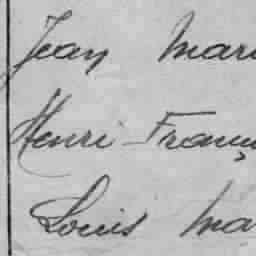 Jean Mari
Henri-Franç
Louis Ma